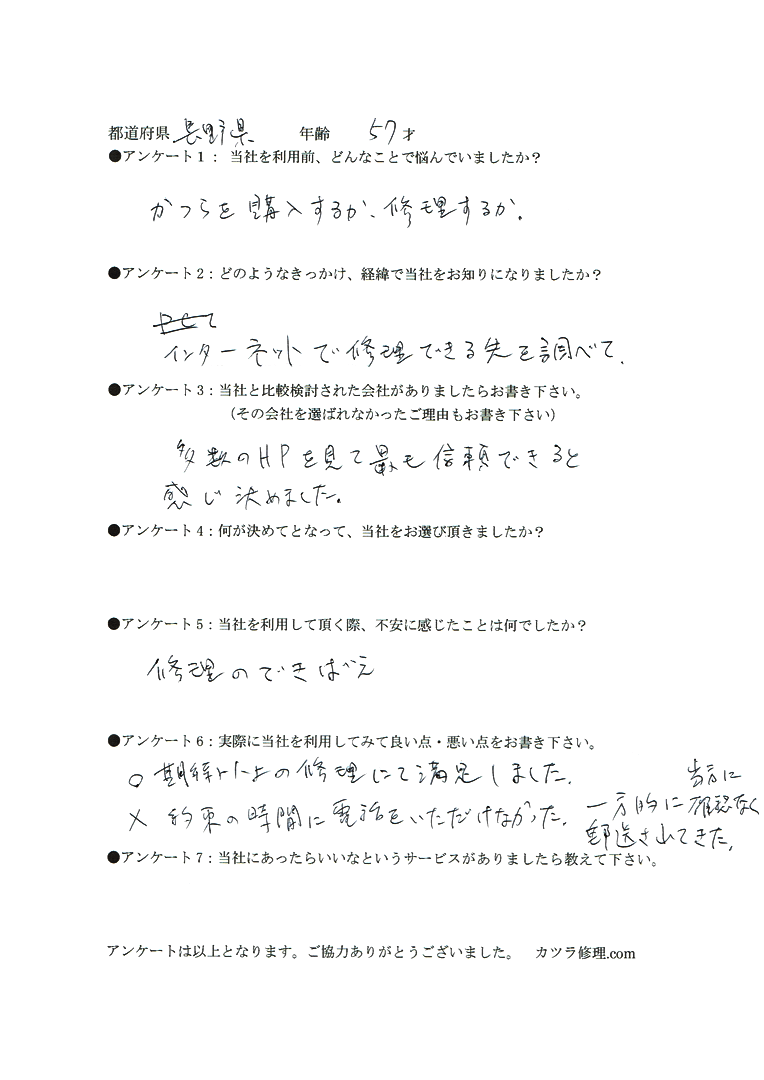 都道府県 長野県 年齢 57才
●アンケート1： 当社を利用前、どんなことで悩んでいましたか？
かつらを購入するか、修理するか。
●アンケート2：どのようなきっかけ、経緯で当社をお知りになりましたか？
インターネットで修理できる先を調べて、
●アンケート3：当社と比較検討された会社がありましたらお書き下さい。
（その会社を選ばれなかったご理由もお書き下さい）
多数のHPを見て最も信頼できると
感じ決めました。
●アンケート4：何が決めてとなって、当社をお選び頂きましたか？
●アンケート5：当社を利用して頂く際、不安に感じたことは何でしたか？
修理のできばえ
●アンケート6：実際に当社を利用してみて良い点・悪い点をお書き下さい。
○ 期待以上の修理にて満足しました。
× 約束の時間に電話をいただけなかった。
当方に
一方的に確認なく
郵送されてきた。
●アンケート7：当社にあったらいいなというサービスがありましたら教えて下さい。
アンケートは以上となります。ご協力ありがとうございました。 カツラ修理.com